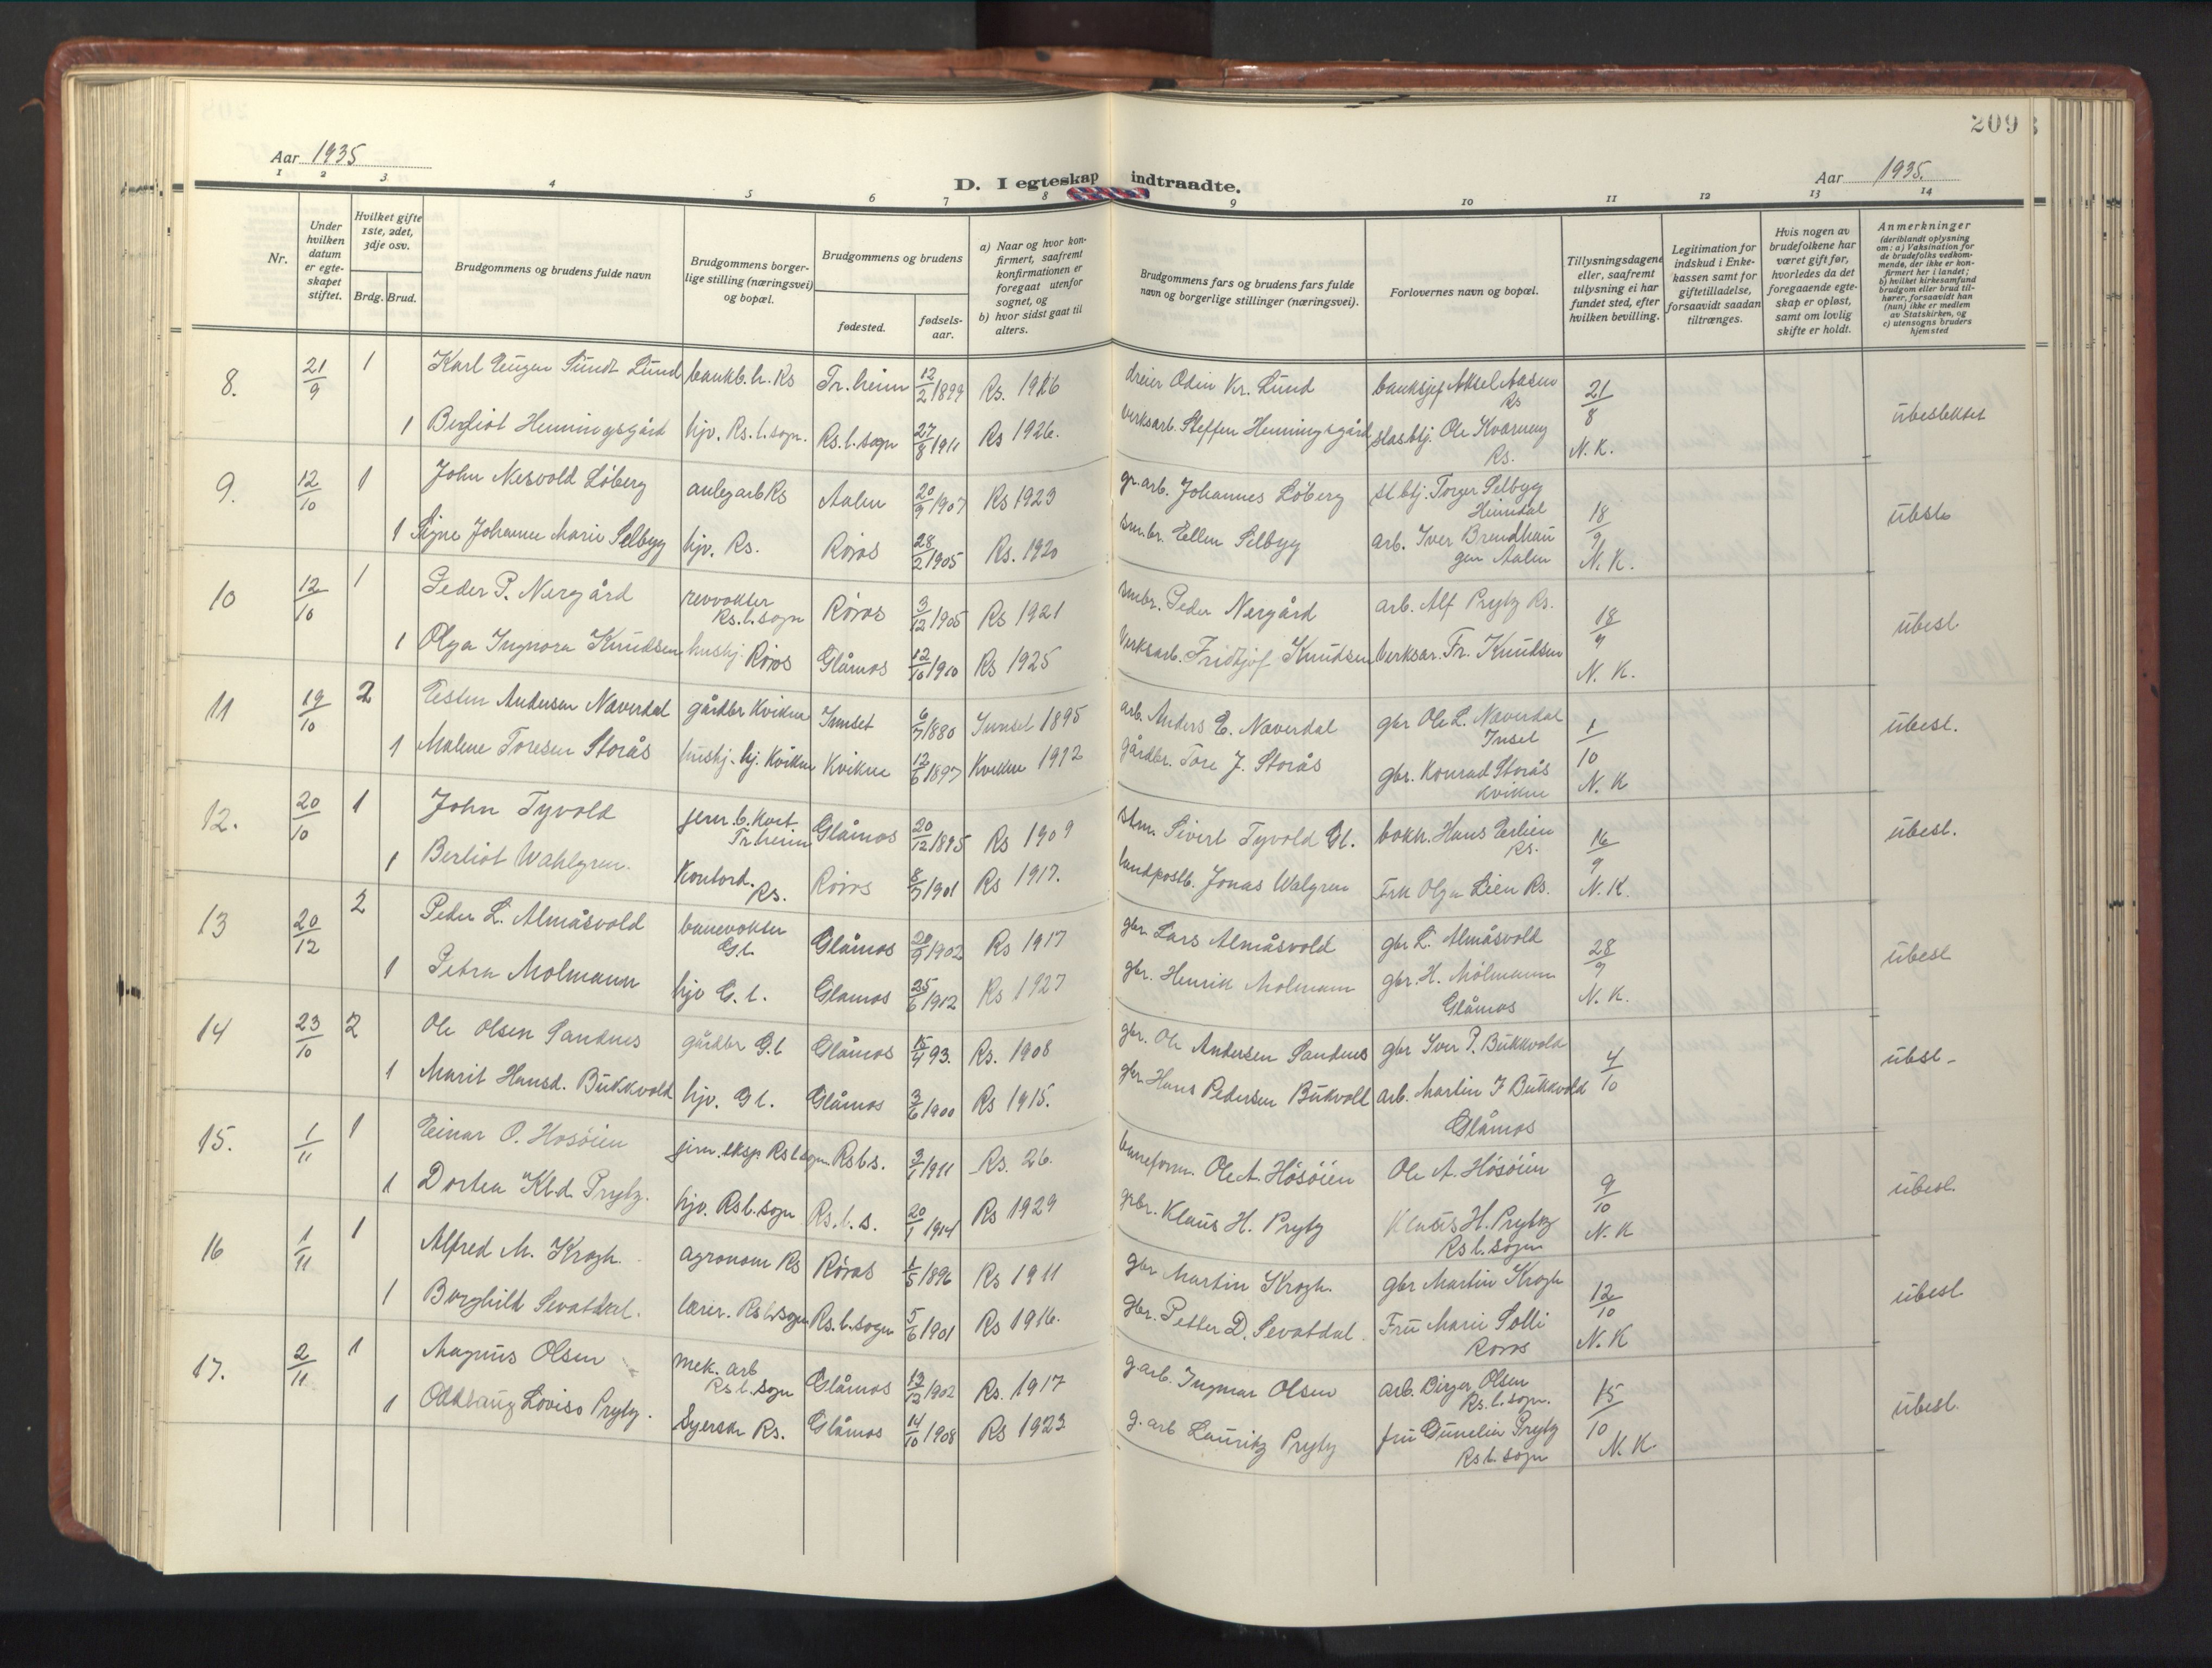 209
Aar 1935
D. I egteskap indtraadte.
Aar 1935.
1 2 3 4 5 6 7 8 9 10 11 12 13 14
Nr.
Under hvilken datum er egte-skapet stiftet.
Hvilket gifte 1ste, 2det, 3dje osv.
Brdg. Brud.
Brudgommens og brudens fulde navn
Brudgommens borger-lige stilling (næringsvei) og bopæl.
Brudgommens og brudens
fødested.
fødsels-aar.
a) Naar og hvor kon-firmert, saafremt konfirmationen er foregaat utenfor sognet, og
b) hvor sidst gaat til alters.
Brudgommens fars og brudens fars fulde navn og borgerlige stillinger (næringsvei).
Forlovernes navn og bopæl.
Tillysningsdagene eller, saafremt tillysning ei har fundet sted, efter hvilken bevilling.
Legitimation for indskud i Enke-kassen samt for giftetilladelse, forsaavidt saadan tiltrænges.
Hvis nogen av brudefolkene har været gift før, hvorledes da det foregaaende egte-skap er opløst, samt om lovlig skifte er holdt.
Anmerkninger
(deriblandt oplysning om: a) Vaksination for de brudefolks vedkom-mende, der ikke er kon-firmert her i landet; b) hvilket kirkesamfund brudgom eller brud til-hører, forsaavidt han (hun) ikke er medlem av Statskirken, og c) utensogns bruders hjemsted
8. 21/9 1 Karl Eugen Sundt Lund bankb.h. Rs Tr.heim 12/2 1899 Rs. 1926 dreier Odin Kr. Lund banksjef Aksel Aasen Rs 21/8 ubeslektet
1 Bergliot Henningsgård hjv. Rs.l.sogn. Rs.l.sogn 27/8 1911 Rs 1926. verksarb. Steffen Henningsgård slasbtj. Ole Kvarneng Rs. N.K.
9. 12/10 1 John Nesvold Løberg anlegarb Rs Aalen 20/9 1907 Rs 1923 gr.arb. Johannes Løberg st.btj. Torger Selbyg Heimdal 18/9 ubesl.
1 Signe Johanne Marie Selbyg hjv. Rs. Røros 28/2 1905 Rs. 1920 sm.br. Ellen Selbyg arb. Iver Brendhaugen Aalen N.K.
10 12/10 1 Peder P. Nergård revvokter Rs.l.sogn Røros 3/12 1905 Rs 1921 smbr. Peder Nergård arb. Alf Prytz Rs. 18/9 ubesl.
1 Olga Ingnora Knudsen hushj. Røros Glåmos 12/10 1910 Rs 1925 verksarb. Fridtjof Knudsen verksar. Fr. Knudsen N.K.
11 19/10 2 Esten Andersen Naverdal gårdbr Kvikne Innset 6/7 1880 Innset 1895 arb. Anders E. Naverdal gbr Ole L. Naverdal Inset 1/10 ubesl.
1 Malene Toresen Storås hushj. hj. Kvikne Kvikne 12/6 1897 Kvikne 1912 gårdbr. Tore J. Storås gbr. Konrad Storås Kvikne N.K
12. 20/10 1 John Tyvold jern.b. Kont Tr.heim Glåmos 20/12 1895 Rs 1909 stm. Sivert Tyvold Gl. bokh. Hans Erlien Rs. 16/9 ubesl.
1 Berliot Wahlgren. Kontord. Rs. Røros 8/7 1901 Rs 1917. landpostb. Jonas Walgren Frk Olga Lien Rs. N.K.
13 20/12 2 Peder L. Almåsvold banevokter Gl. Glåmos 20/9 1902 Rs 1917 gbr. Lars Almåsvold gbr L. Almåsvold 28/9 ubesl
1 Petra Molmann hjv G.l. Glamos 25/6 1912 Rs 1927 gbr. Henrik Molmann gbr. H. Mölmann Glåmos N.K.
14 23/10 2 Ole Olsen Sandnes gårdbr Gl Glåmos 15/4 93. Rs. 1908 gbr. Ole Andersen Sandnes gbr Iver P. Bukkvold 4/10 ubesl.
1 Marit Hansd. Bukkvold hjv. Gl. Glåmos 3/6 1900 Rs 1915. gbr Hans Pedersen Bukvold arb. Martin J Bukkvold Glåmos
15. 1/11 1 Einar O. Hosöien jern.eksp Rs l sogn Rs l.s. 3/1 1911 Rs. 26. baneform. Ole A. Hösöien Ole A. Hösöien 9/10 ubesl.
1 Dortea Kl.d. Prytz. hjv. Rs l. sogn Rs. l. s. 20/1 1914 Rs 1929 gbr. Klaus H. Prytz Klaus H. Prytz Rs l. sogn N.K
16 1/11 1 Alfred M. Krogh. agronom Rs Röros 1/5 1896 Rs 1911 gbr Martin Krogh. gbr Martin Krogh 12/10 ubesl
1 Borghild Sevatdal. lærer. Rs l.sogn Rs. l. sogn 5/6 1901 Rs 1916. gbr. Petter D. Sevatdal. Fru Marie Solli Røros N.K
17. 2/11 1 Magnus Olsen mek. arb Rs l. sogn Glåmos 13/12 1902 Rs. 1917 g.arb. Ingmar Olsen arb. Birger Olsen Rs. l. sogn. 15/10 ubesl.
1 Oddlaug Loviso Prytz. Syerske Rs. Glåmos 14/10 1908 Rs 1923 g.arb Lauritz Prytz fru Prytz Rs l. sogn N.K.